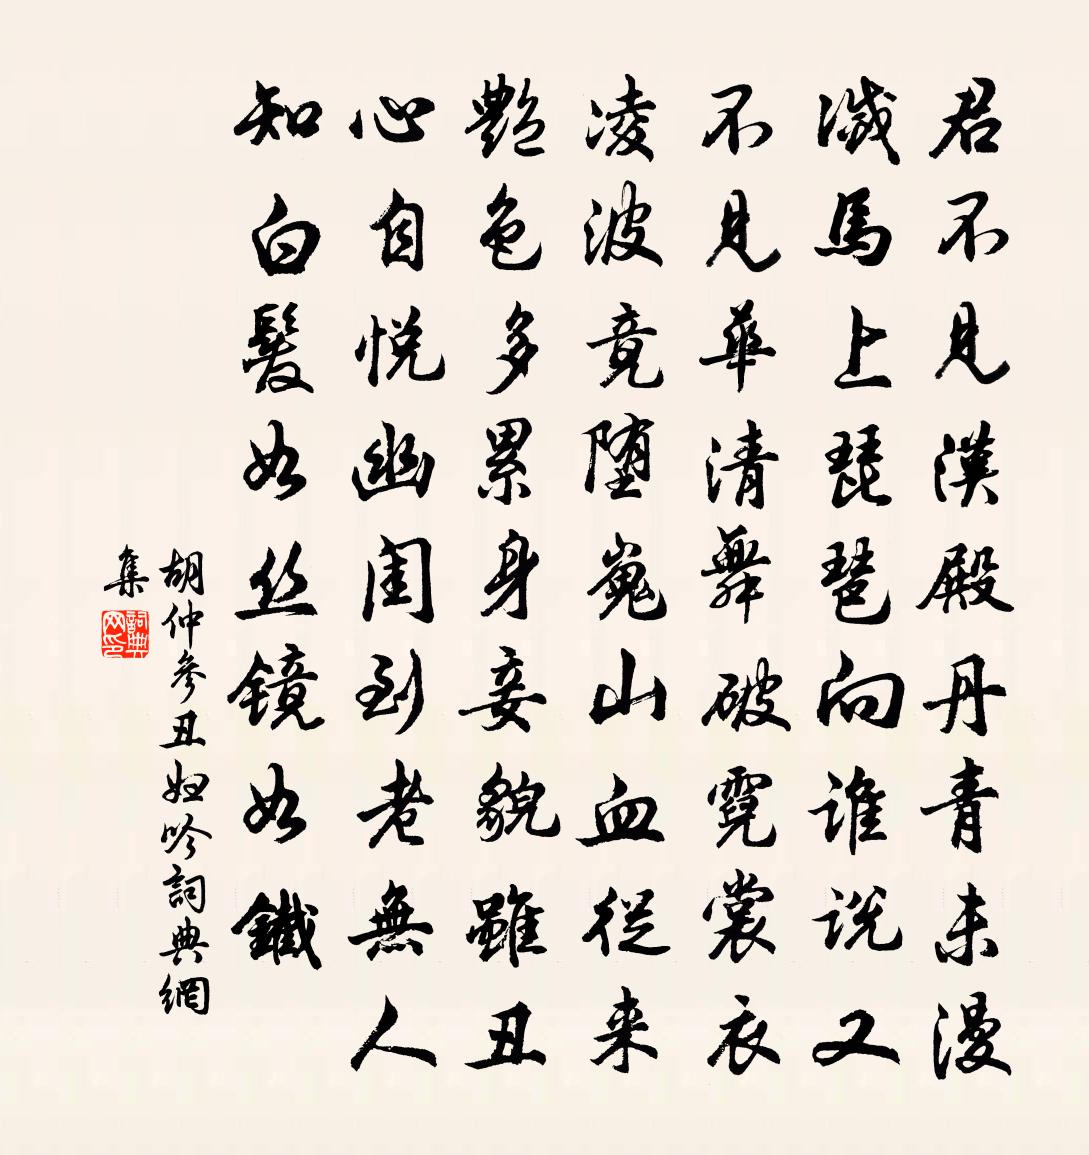 君不見漢殿丹青未漫
滅馬上琵琶向誰说又
不見華清舞破霓裳衣
凌波竟堕嵬山血從来
艷色多累身妾貌雖丑
心自悦幽闺到老無人
知白髮如丝镜如鐵
胡仲參丑妇吟詞典網
集
詞典网印